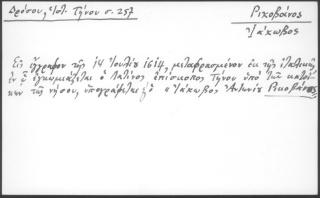 Δρόσου, Ἱστ. Τήνου σ. 257
Ρικοβάνος
Ἰάκωβος
Εἰς ἔγγραφον τῆς 14 Ἰουλίου 1614, μεταφρασμένον ἐκ τῆς ἰταλικῆς
ἐν ᾧ ἐγκωμιάζεται ὁ Λατῖνος ἐπίσκοπος Τήνου ὑπὸ τῶν κατοί-
κων τῆς νήσου, ὑπογράφεται καὶ ὁ "Ἰάκωβος Ἀντωνίου Ρικοβάνος